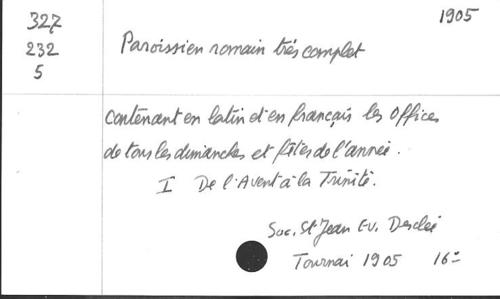 327
1905
232
Paroissien romain très complet
5
contenant en latin et en français les Offices
de tous les dimanches et fêtes de l'année.
I De l'Avent à la Trinité.
Soc. St Jean Ev. Desclée
Tournai 1905 16°